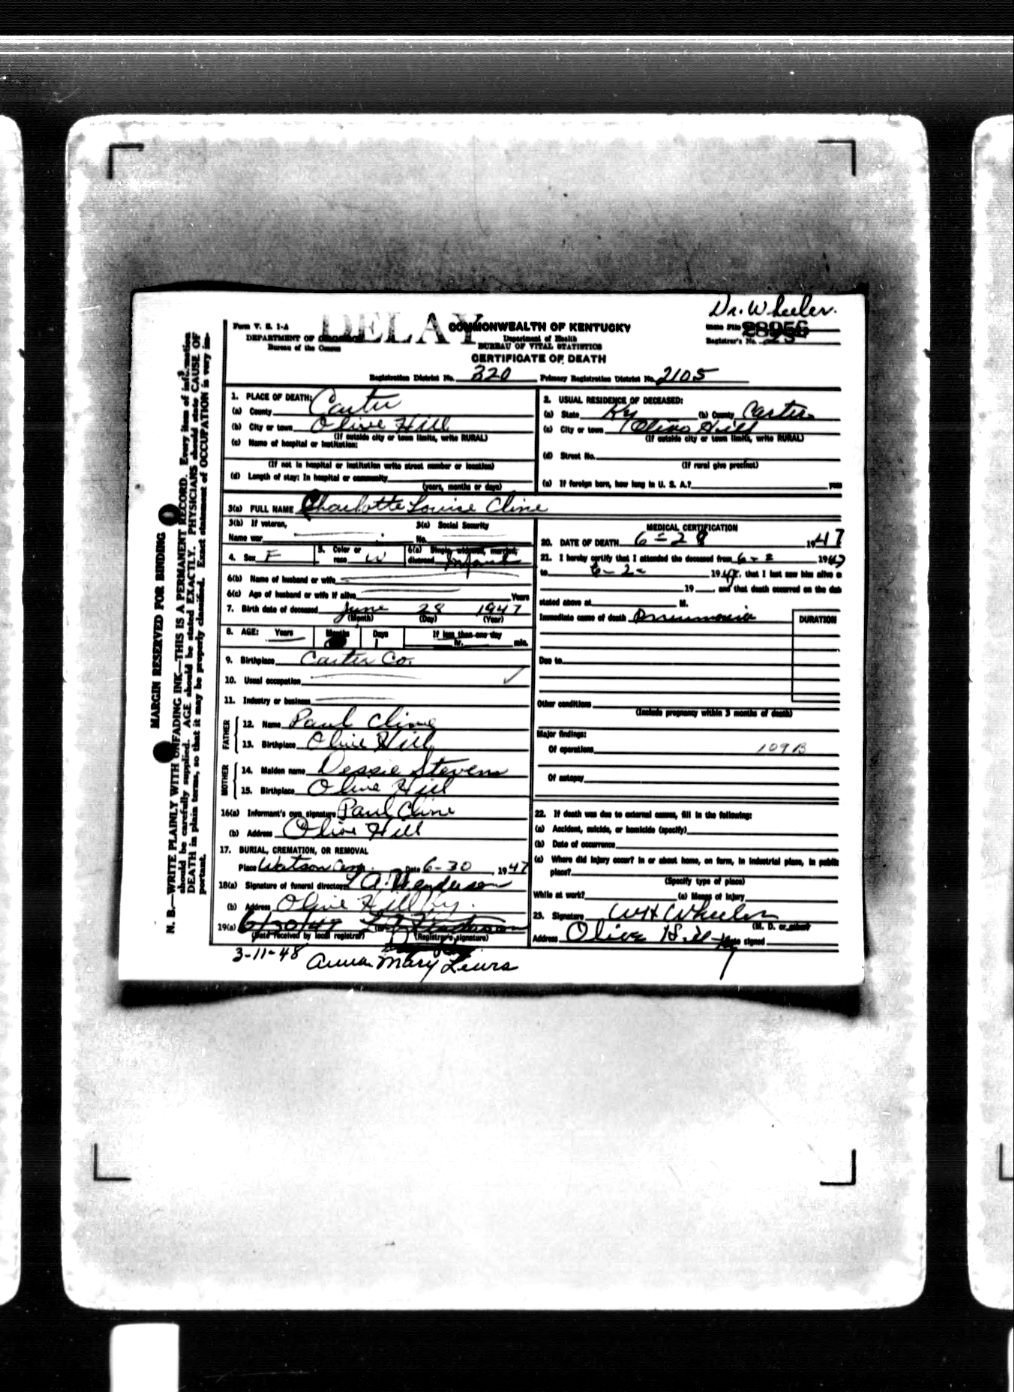 Dr. Wheeler.
DELAY
Form V. S. 1-A
DEPARTMENT OF
Bureau of the Census
COMMONWEALTH OF KENTUCKY
Department of Health
BUREAU OF VITAL STATISTICS
CERTIFICATE OF DEATH
State File 28956
Registrar's No. 25
Registration District No. 220 Primary Registration District No. 2105
MARGIN RESERVED FOR BINDING
N. B.—WRITE PLAINLY WITH UNFADING INK—THIS IS A PERMANENT RECORD. Every item of information
should be carefully supplied. AGE should be stated EXACTLY. PHYSICIANS should state CAUSE OF
DEATH in plain terms, so that it may be properly classified. Exact statement of OCCUPATION is very im-
portant.
1. PLACE OF DEATH:
(a) County Carter
(b) City or town Olive Hill
(If outside city or town limits, write RURAL)
(c) Name of hospital or institution:
(If not in hospital or institution write street number or location)
(d) Length of stay: In hospital or community
(years, months or days)
2. USUAL RESIDENCE OF DECEASED:
(a) State Ky (b) County Carter
(c) City or town Olive Hill
(If outside city or town limits, write RURAL)
(d) Street No.
(If rural give precinct)
(e) If foreign born, how long in U. S. A.? years
3(a) FULL NAME Charlotte Louise Cline
3(b) If veteran,
Name war
3(c) Social Security
No.
4. Sex F
5. Color or
race W
6(a) Single, widowed, married,
divorced Infant
6(b) Name of husband or wife
6(c) Age of husband or wife if alive Years
7. Birth date of deceased June 28 1947
(Month) (Day) (Year)
8. AGE: Years Months Days If less than one day
hr. min.
9. Birthplace Carter Co.
10. Usual occupation
11. Industry or business
FATHER
12. Name Paul Cline
13. Birthplace Olive Hill
MOTHER
14. Maiden name Dessie Stevens
15. Birthplace Olive Hill
16(a) Informant's own signature Paul Cline
(b) Address Olive Hill
17. BURIAL, CREMATION, OR REMOVAL
Place Watson Date 6-30 1947
18(a) Signature of funeral director Henderson
(b) Address Olive Hill Ky.
19(a) 6/30/47
(Date received by local registrar) (Registrar's signature)
3-11-48 Anna Mary Lewis
MEDICAL CERTIFICATION
20. DATE OF DEATH 6-28 1947
21. I hereby certify that I attended the deceased from 6-2 1947
to 6-2- 1947, that I last saw him alive o
19 , and that death occurred on the date
stated above at M.
Immediate cause of death Pneumonia
DURATION
Due to
Other conditions
(Include pregnancy within 3 months of death)
Major findings:
Of operations 109B
Of autopsy
22. If death was due to external causes, fill in the following:
(a) Accident, suicide, or homicide (specify)
(b) Date of occurrence
(c) Where did injury occur? in or about home, on farm, in industrial place, in public
place?
(Specify type of place)
While at work? (e) Means of injury
23. Signature W H Wheeler
(M. D. or other)
Address Olive Hill Ky Date signed